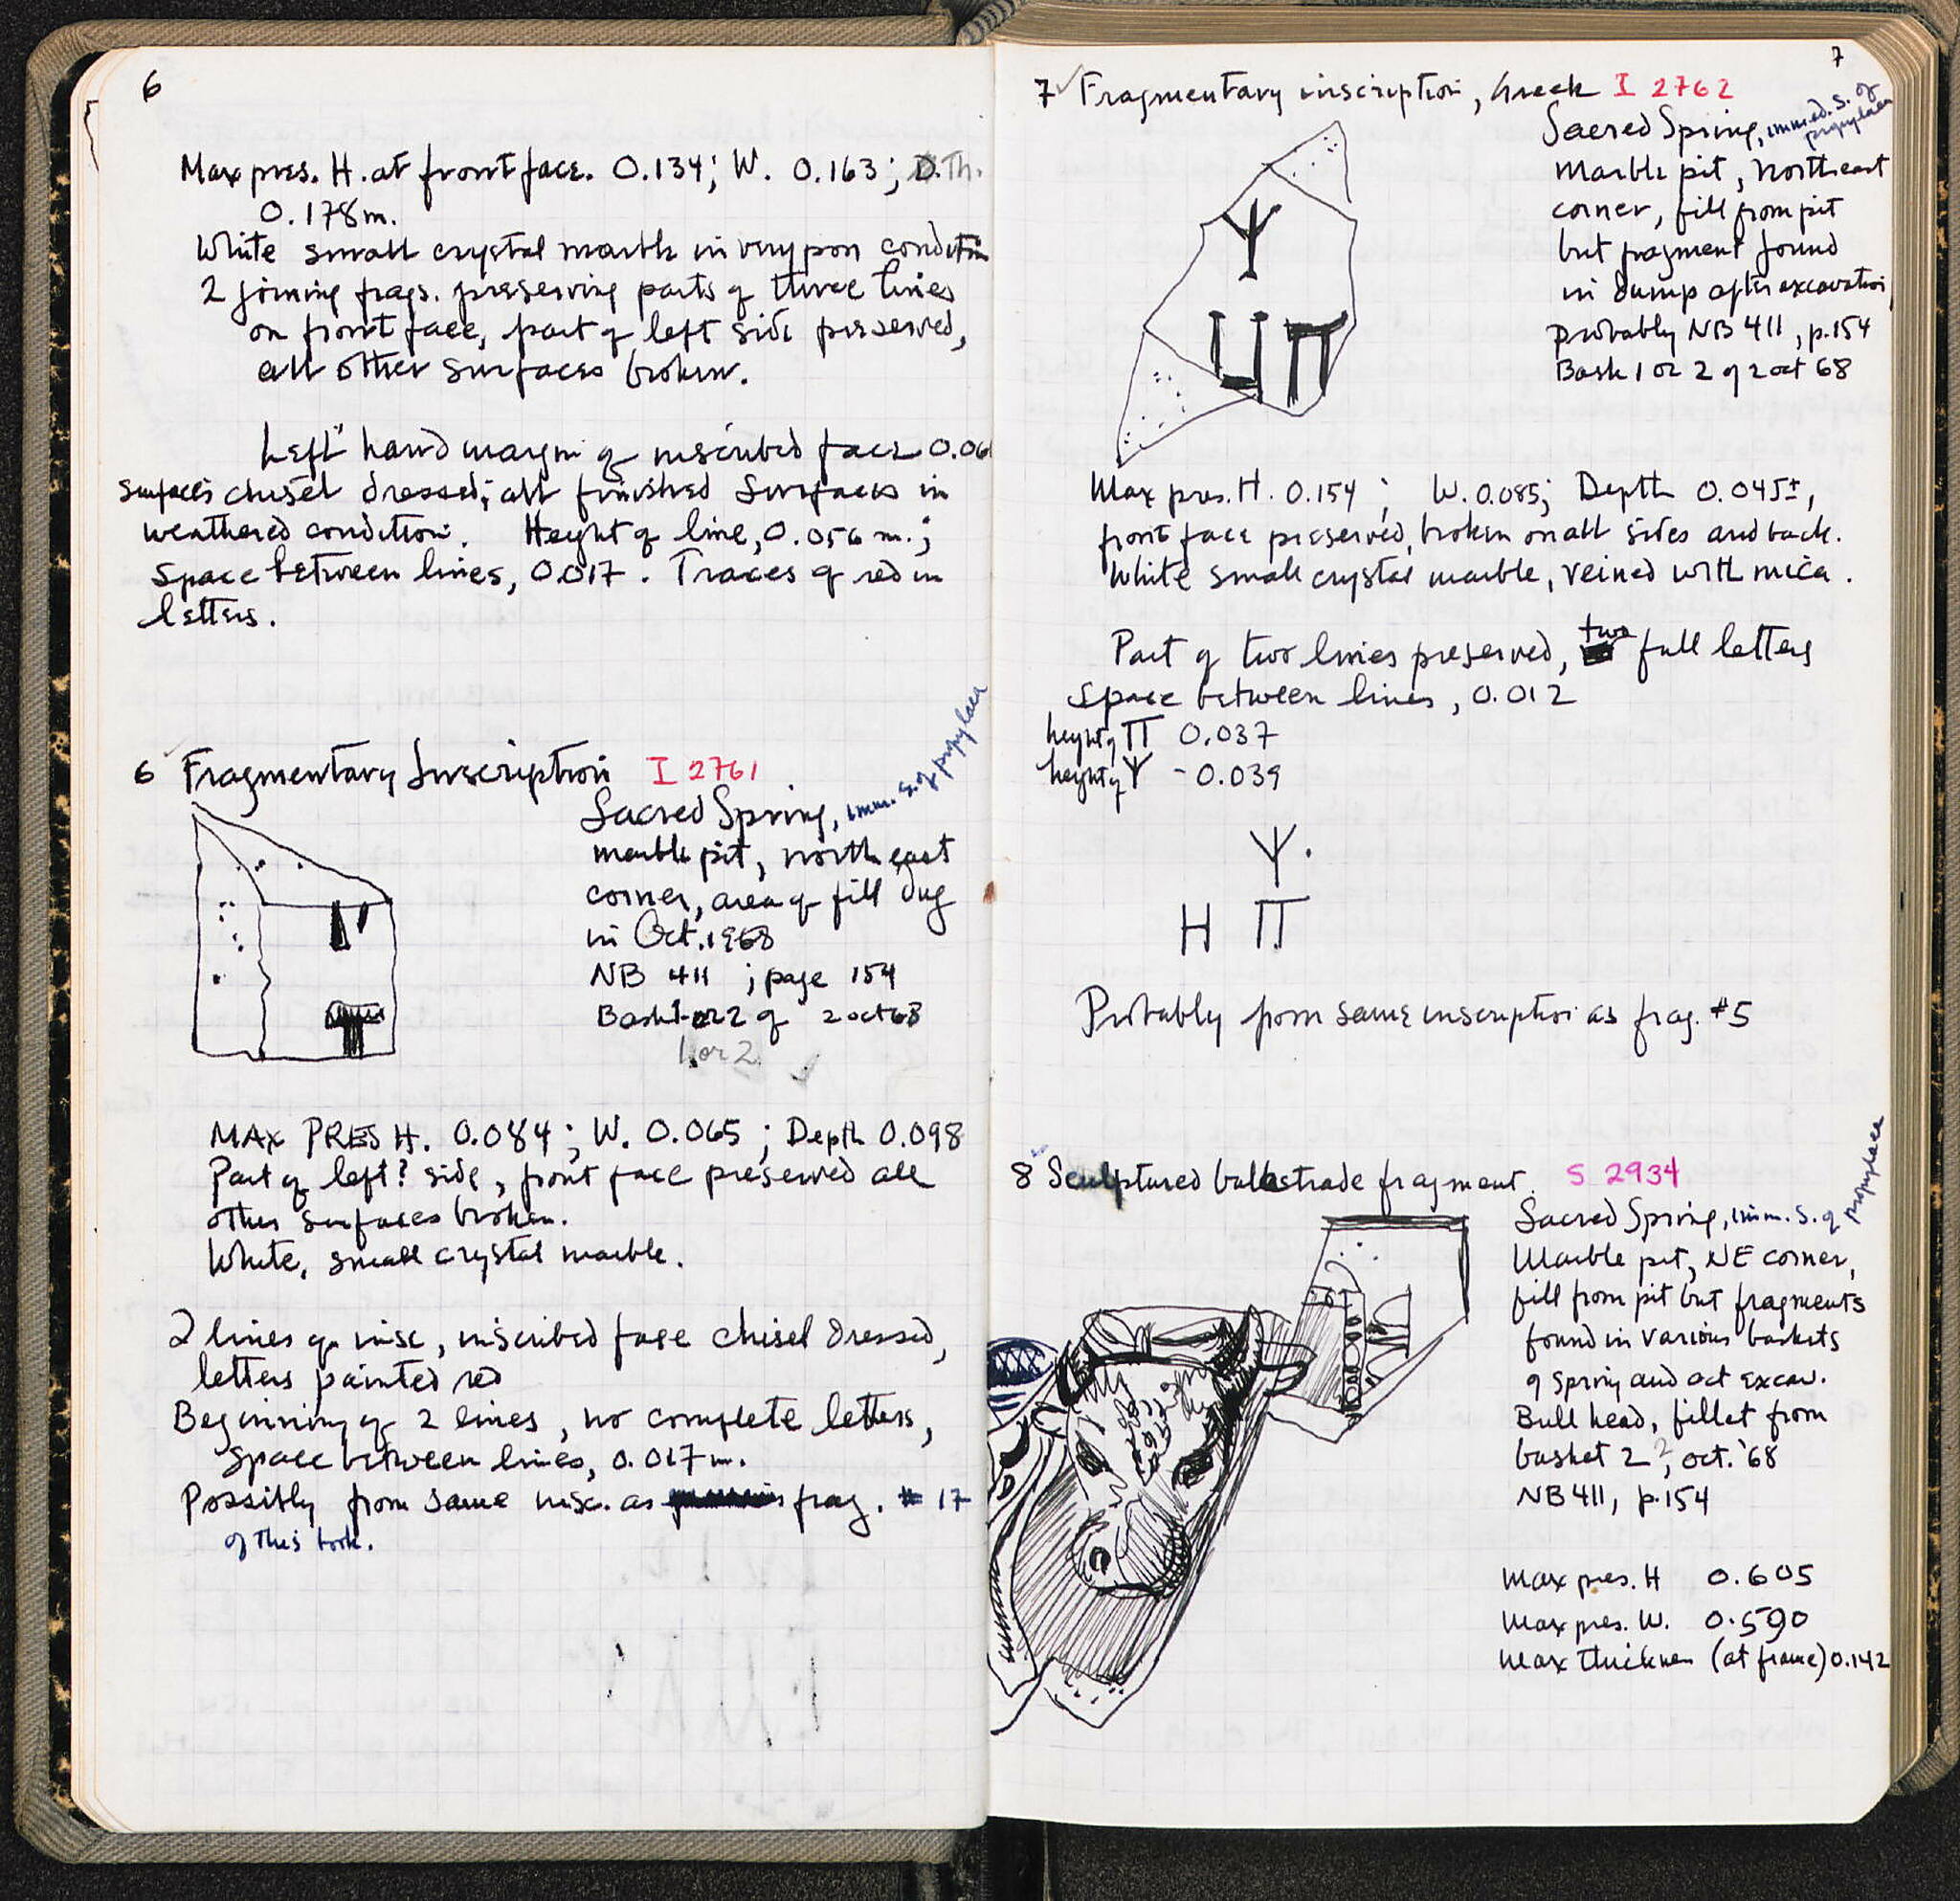 6
Max pres. H. at front face. 0.134; W. 0.163; D. Th.
0.178m.
White small crystal marble in very poor condition
2 joining frags. preserving parts of three lines
on front face, part of left side preserved,
all other surfaces broken.
Left hand margin of inscribed face 0.06
surfaces chisel dressed; all finished surfaces in
weathered condition. Height of line, 0.056 m.;
Space between lines, 0.017. Traces of red in
letters.
6 Fragmentary Inscription I 2761
Sacred Spring, imm. S. of propylaea
marble pit, north east
corner, area of fill dug
in Oct. 1968
NB 411 ; page 154
Bask 1 or 2 of 2 oct 68
1 or 2
MAX PRES H. 0.084; W. 0.065; Depth 0.098
Part of left? side, front face preserved all
other surfaces broken.
White, small crystal marble.
2 lines of insc, inscribed face chisel dressed,
letters painted red
Beginning of 2 lines, no complete letters,
space between lines, 0.017 m.
Possibly from same insc. as frag. # 17
of this book.
7
7 Fragmentary inscription, Greek I 2762
Sacred Spring, immed. S. of propylaea
Marble pit, Northeast
corner, fill from pit
but fragment found
in dump after excavation
probably NB 411, p.154
Bask 1 or 2 of 2 oct 68
Max pres. H. 0.154; W. 0.085; Depth 0.045±,
front face preserved, broken on all sides and back.
White small crystal marble, veined with mica.
Part of two lines preserved, two full letters
Space between lines, 0.012
height of Π 0.037
height of Ψ - 0.039
Ψ.
H Π
Probably from same inscription as frag. #5
8 Sculptured ballestrade fragment. S 2934
Sacred Spring, imm. S. of propylaea
Marble pit, NE corner,
fill from pit but fragments
found in various baskets
of spring and oct excav.
Bull head, fillet from
basket 2?, oct. '68
NB 411, p.154
Max pres. H 0.605
Max pres. W. 0.590
Max thickness (at frame) 0.142